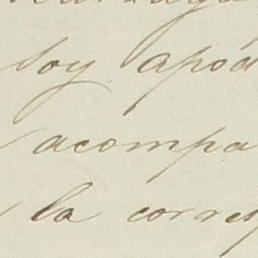 soy apod
acompa
la corres